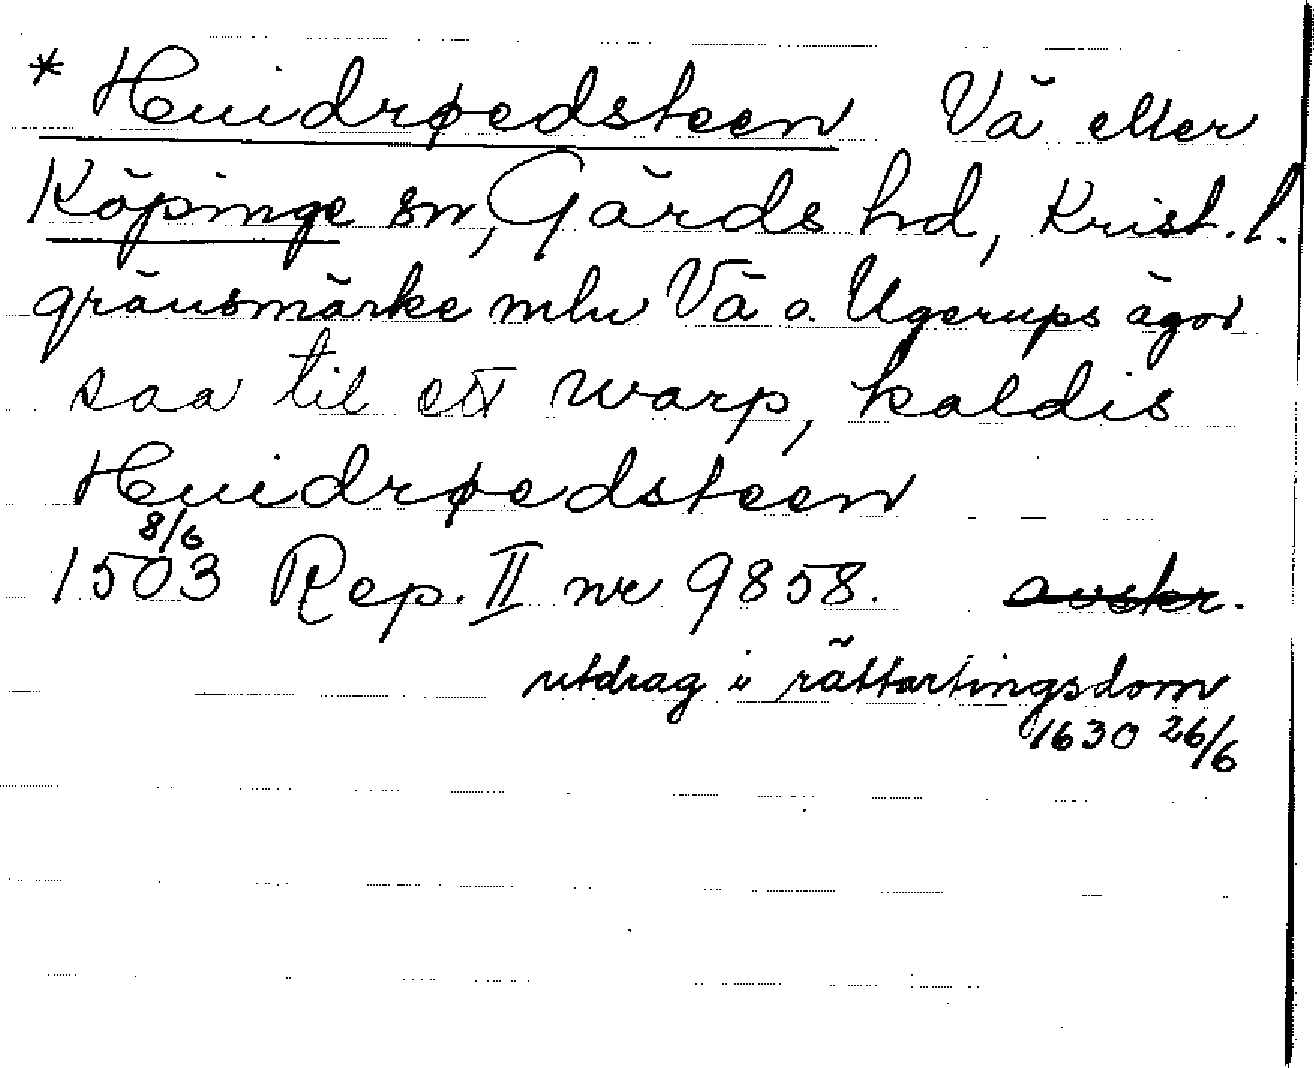 * Huidrøedsteen Vä eller
Köpinge sn, Gärds hd, Krist. l.
gränsmärke mln Vä o. Ugerups ägor
saa til ett warp, kaldis
Huidrøedsteen
1503 8/6 Rep. II nr 9858. avskr.
utdrag i rättartingsdom
1630 26/6